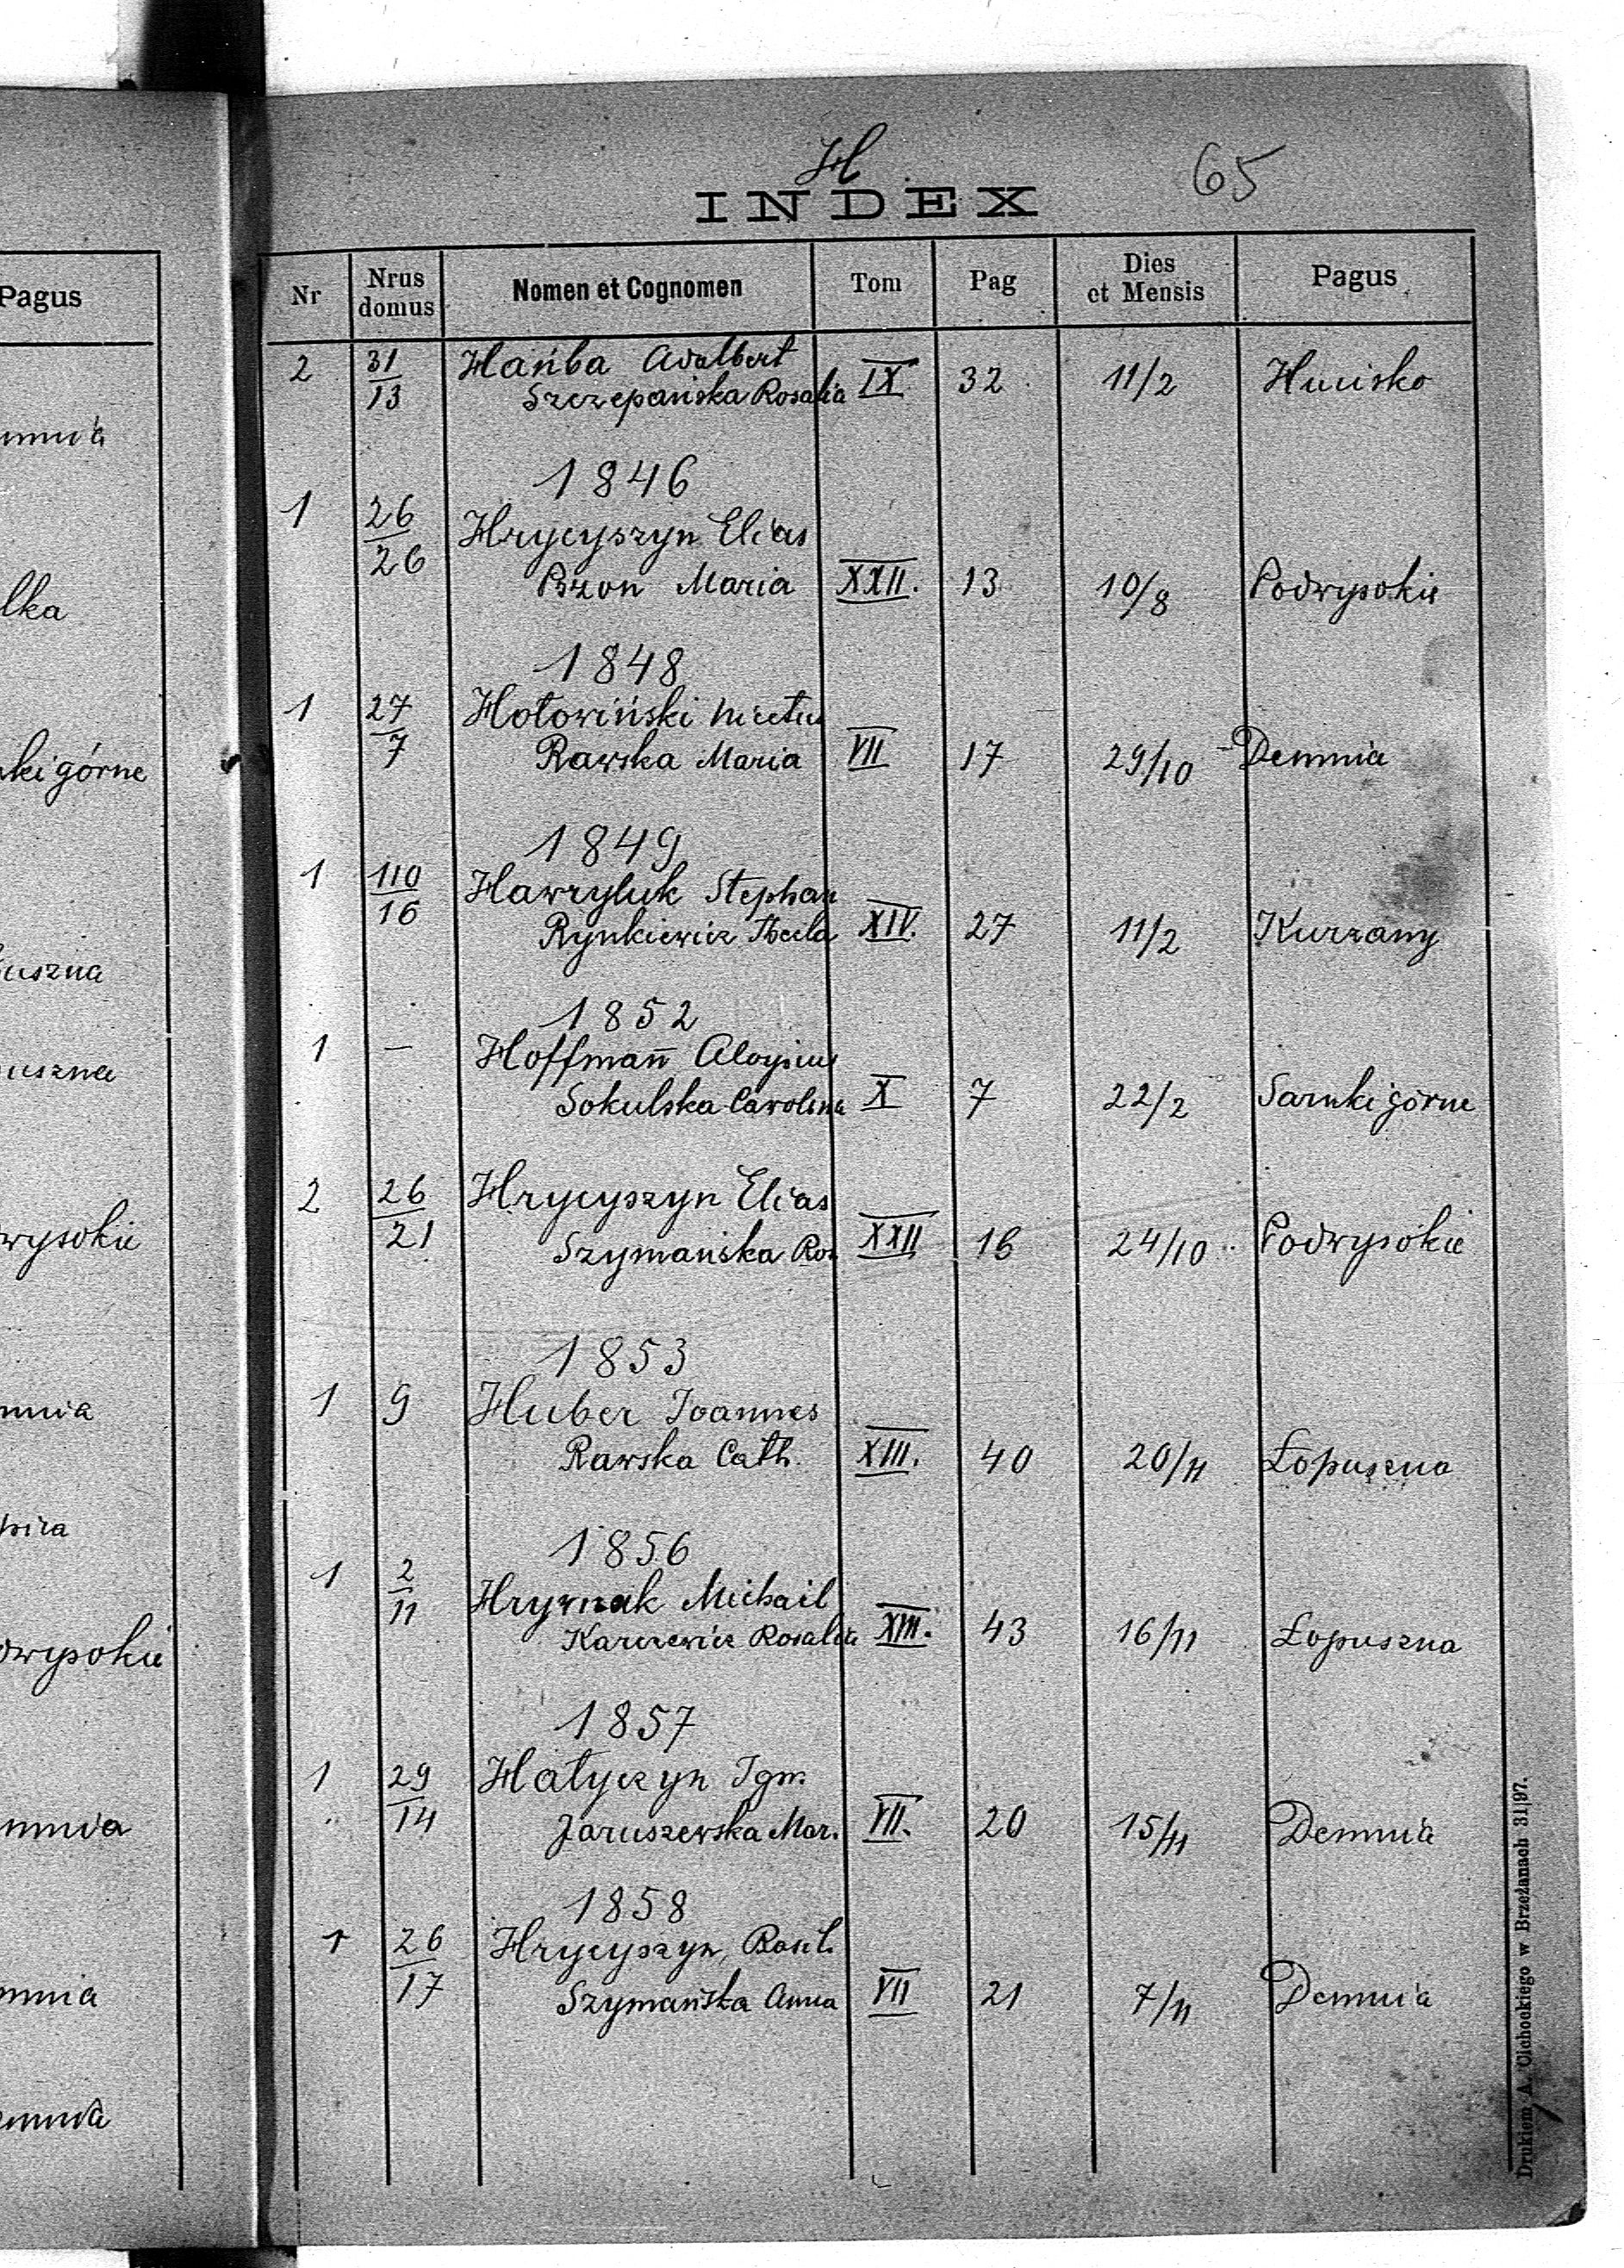 Pagus
mnia
lka
ki górne
uszna
uszna
wysokie
mnia
owysokie
mnia
mnia
H
65
INDEX
Nr Nrus domus Nomen et Cognomen Tom Pag Dies et Mensis Pagus
2 31/13 Hańba Adalbert
Szczepańska Rosalia IX 32 11/2 Hucisko
1846
1 26/26 Hrycyszyn Elias
Bzon Maria XXII. 13 10/8 Podwysokie
1848
1 27/7 Hołowiński
Rawska Maria VII 17 29/10 Demnia
1849
1 110/16 Hawryluk Stephan
Rynkiewicz Thecla XIV. 27 11/2 Kurzany
1852
1 — Hoffmann Aloysius
Sokulska Carolina X 7 22/2 Sarnki górne
2 26/21 Hrycyszyn Elias
Szymańska Ros XXII 16 24/10 Podwysokie
1853
1 9 Huber Joannes
Rawska Cath. XIII. 40 20/11 Łopuszna
1856
1 2/11 Hrywnak Michail
Karczewicz Rosalia XIII. 43 16/11 Łopuszna
1857
1 29/14 Hałyczyn Ign.
Jaruszewska Mar. VII. 20 15/11 Demnia
1858
1 26/17 Hrycyszyn Basil.
Szymańska Anna VII 21 7/11 Demnia
Drukiem A. Cichockiego w Brzeżanach 31|97.